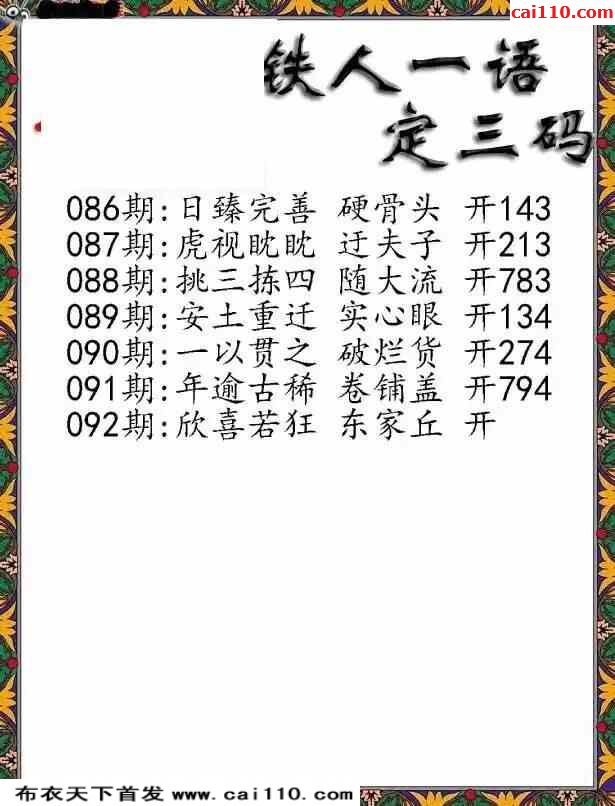 cai110.com
铁人一语
定三码
086期:日臻完善 硬骨头 开143
087期:虎视眈眈 迂夫子 开213
088期:挑三拣四 随大流 开783
089期:安土重迁 实心眼 开134
090期:一以贯之 破烂货 开274
091期:年逾古稀 卷铺盖 开794
092期:欣喜若狂 东家丘 开
布衣天下首发 www.cai110.com